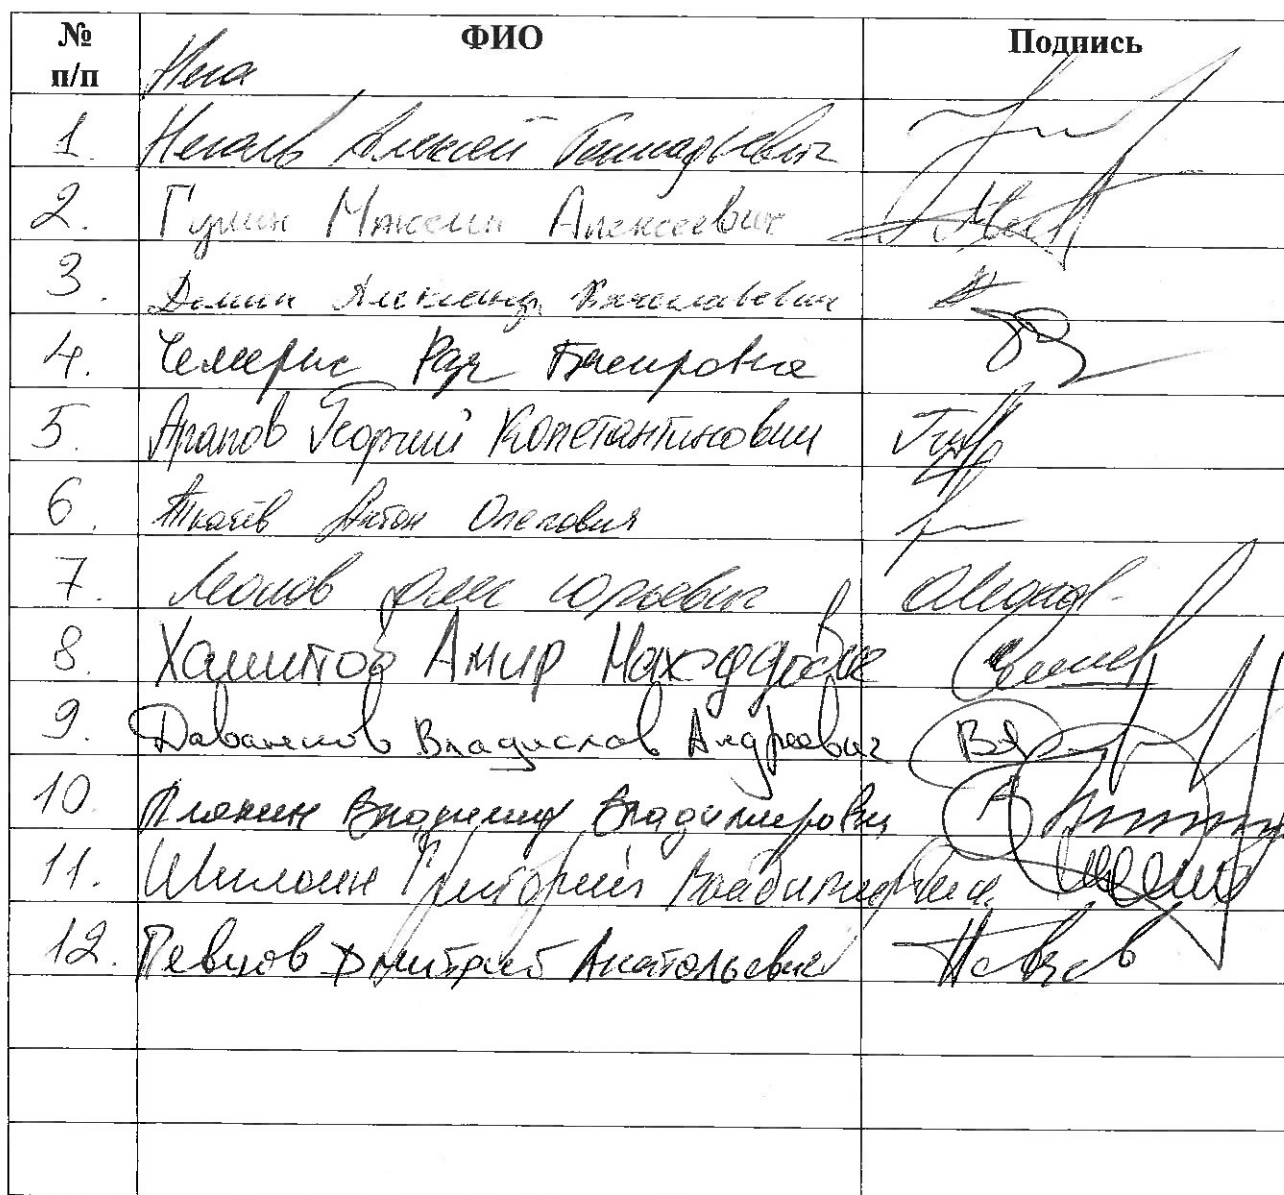 № п/п ФИО Подпись
Неча
1. Нечаев Алексей Геннадьевич
2. Гулин Максим Алексеевич
3. Демин Александр Вячеславович
4. Чемерис Роза Басировна
5. Арапов Георгий Константинович
6. Ткачёв Антон Олегович
7. Леонов Олег Юрьевич
8. Хамитов Амир
9. Даванков Владислав Андреевич
10. Плякин Владимир Владимирович
11. Шилкин Григорий Владимирович
12. Певцов Дмитрий Анатольевич Певцов